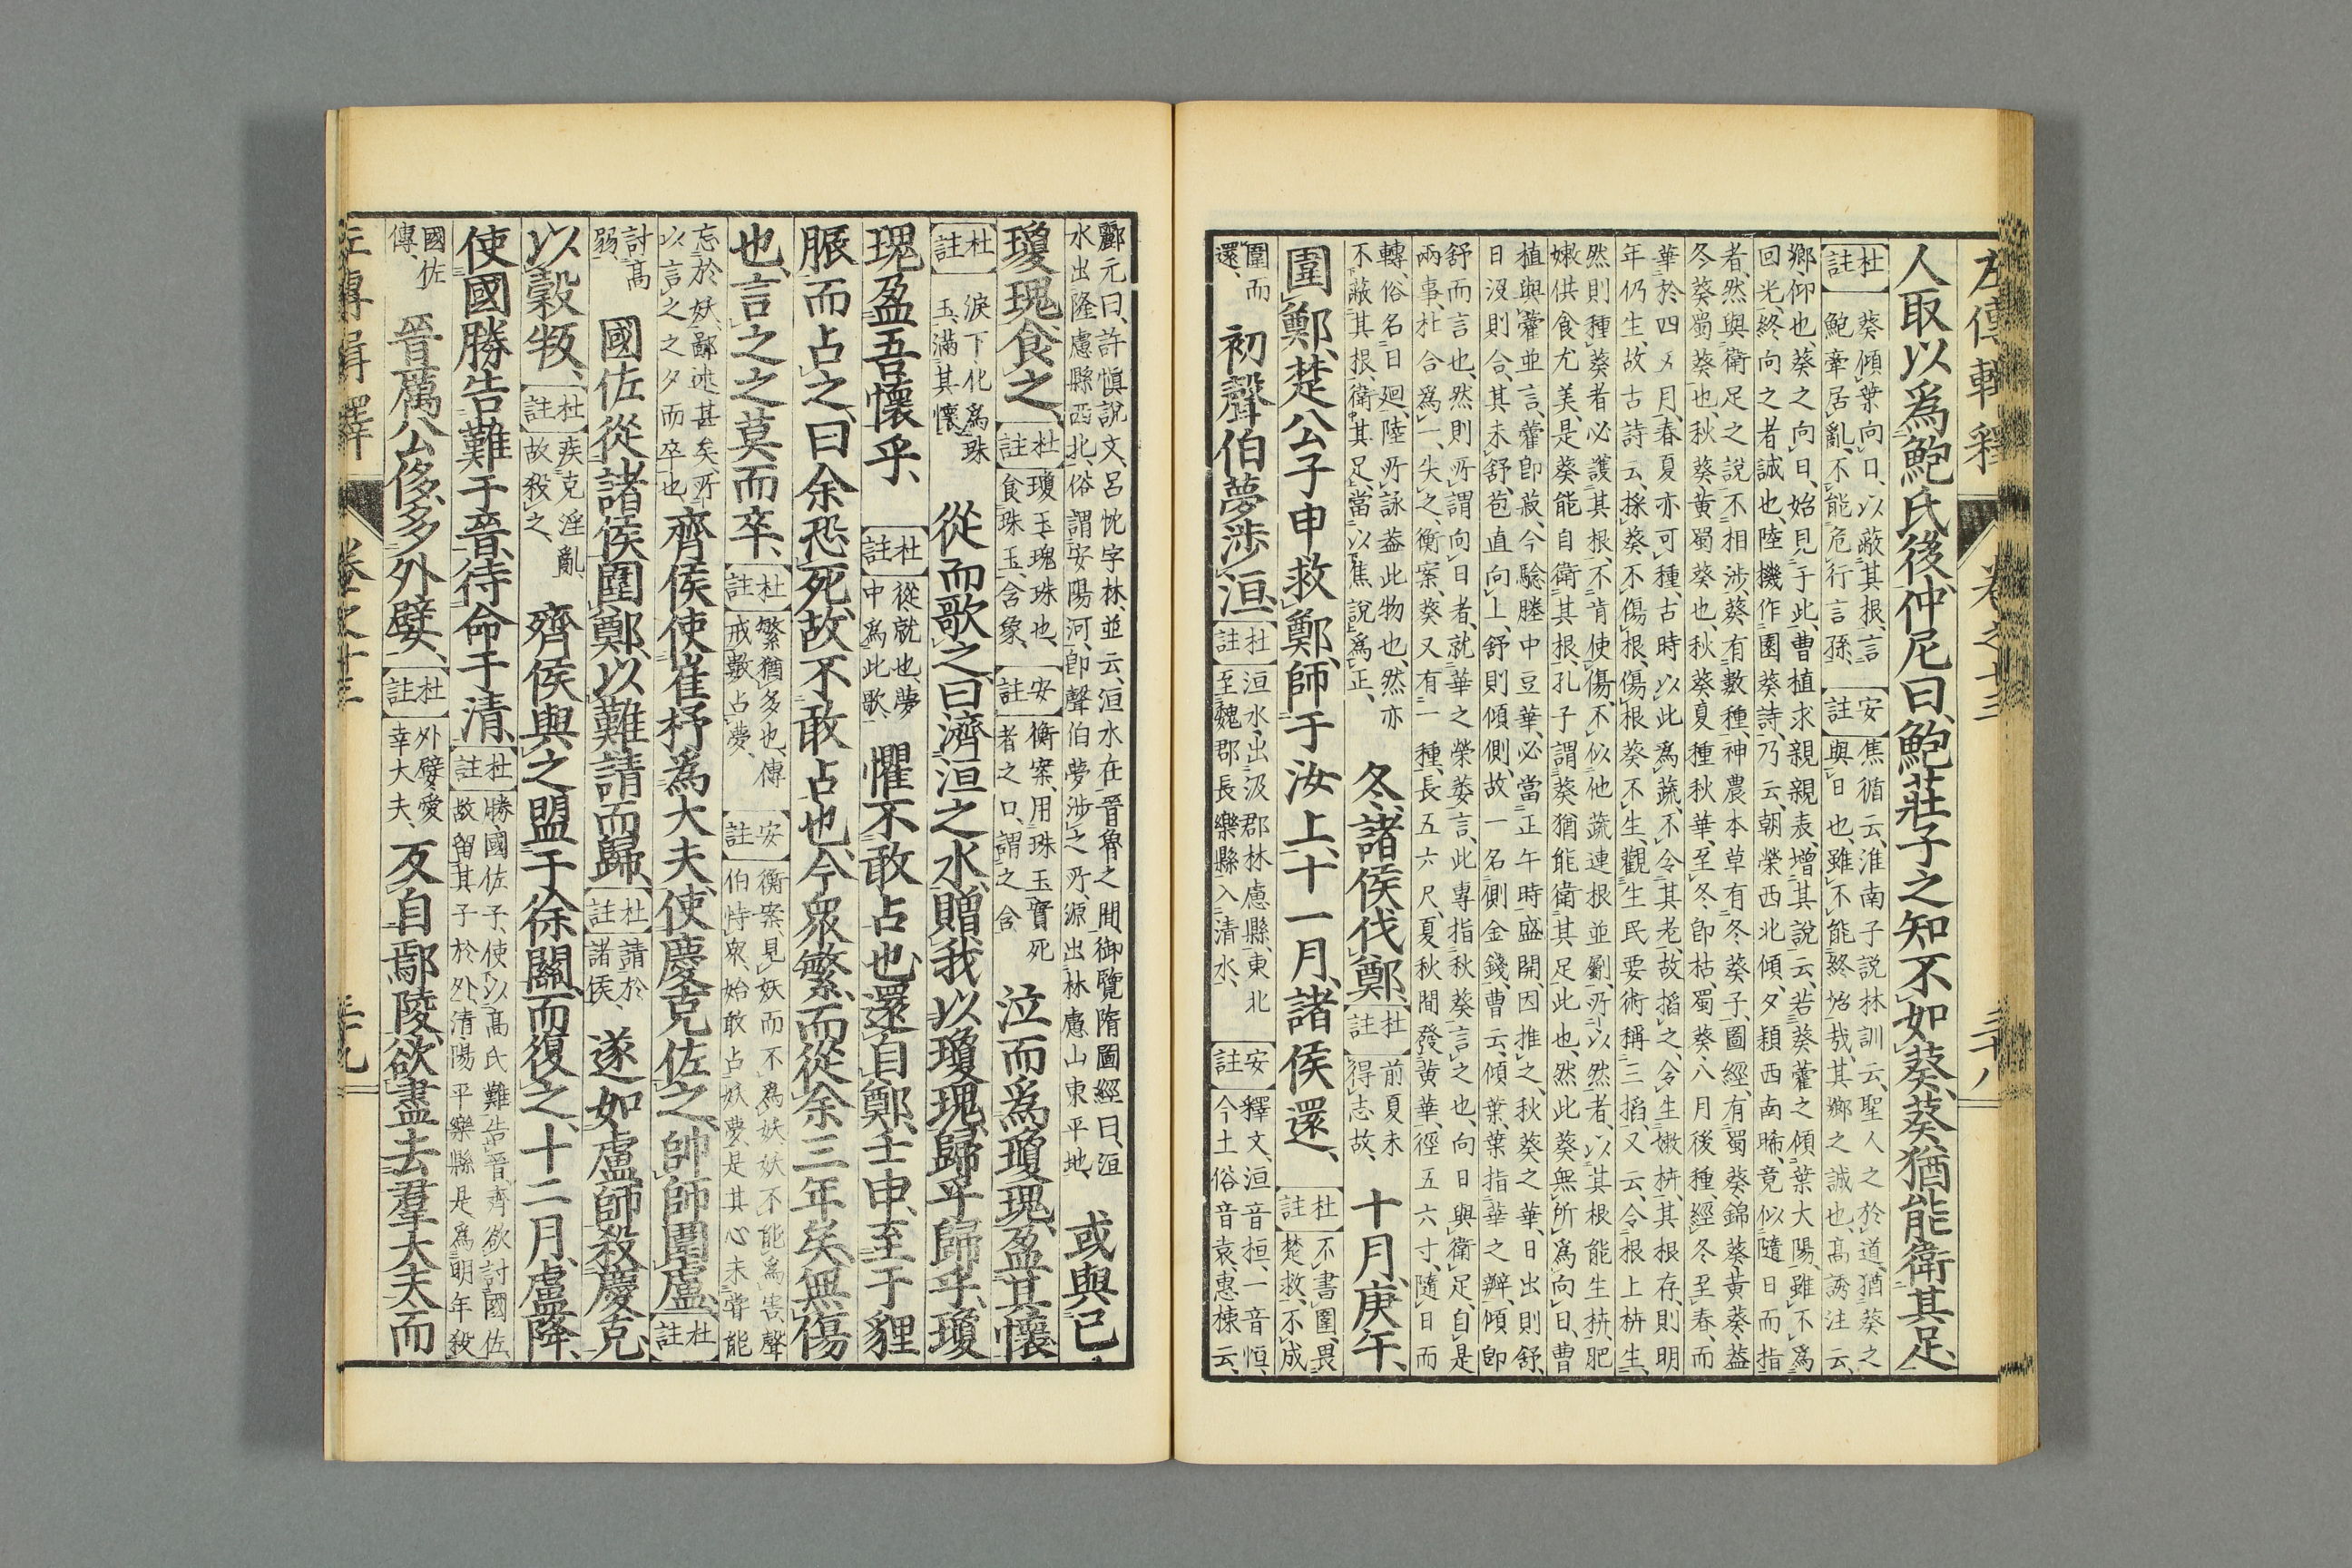 左傳輯釋 卷之十三 三十八
人取以爲鮑氏後、仲尼曰、鮑莊子之知不如葵、葵猶能衛其足、
杜註 葵傾葉向日、以蔽其根、言鮑牽居亂、不能危行言孫、 安註 焦循云、淮南子說林訓云、聖人之於道、猶葵之與日也、雖不能終始哉、其鄉之誠也、高誘注云、
鄉、仰也、葵之向日、始見于此、曹植求親親表、增其說云、若葵藿之傾葉大陽、雖不爲回光、終向之者誠也、陸機作園葵詩、乃云、朝榮西北傾、夕穎西南晞、竟似隨日而指
者、然與衛足之說、不相涉、葵有數種、神農本草有冬葵子、圖經、有蜀葵、錦葵、黃葵、葢冬葵蜀葵也、秋葵、黃蜀葵也、秋葵、夏種秋華、至冬卽枯、蜀葵、八月後種、經冬至春、而
華於四五月、春夏亦可種、古時以此爲蔬、不令其老、故搯之、令生嫩枿、其根存則明年仍生、故古詩云、採葵不傷根、傷根葵不生、觀生民要術稱三搯、又云、令根上枿生、
然則種葵者必護其根、不肯使傷、不似他蔬連根並劚、所以然者、以其根能生枿、肥嫩供食尤美、是葵能自衛其根、孔子謂葵猶能衛其足此也、然此葵無所爲向日、曹
植與藿並言、藿卽菽、今驗塍中豆華、必當正午時盛開、因推之、秋葵之華、日出則舒、日沒則合、其未舒、苞直向上、舒則傾側、故一名側金錢、曹云、傾葉、葉指華之瓣、傾卽
舒而言也、然則所謂向日者、就華之榮萎言、此專指秋葵言之也、向日與衛足、自是兩事、杜合爲一、失之、衡案、葵又有一種、長五六尺、夏秋間發黃華、徑五六寸、隨日而
轉、俗名日迴、陸所詠葢此物也、然亦不蔽其根、衛其足、當以焦說爲正、 冬、諸侯伐鄭、 杜註 前夏未得志故、 十月、庚午、
圍鄭、楚公子申救鄭、師于汝上、十一月、諸侯還、 杜註 不書圍、畏楚救、不成
圍而還、 初、聲伯夢涉洹、 杜註 洹水、出汲郡林慮縣、東北至魏郡長樂縣入清水、 安註 釋文、洹音桓、一音恒、今土俗音袁、惠棟云、
酈元曰、許愼說文、呂忱字林、並云、洹水在晉魯之間、御覽隋圖經曰、洹水出隆慮縣西北、俗謂安陽河、卽聲伯夢涉之所、源出林慮山東平地、 或與己
瓊瑰食之、 杜註 瓊、玉、瑰、珠也、食珠玉、含象、 安註 衡案、用珠玉實死者之口、謂之含、 泣而爲瓊瑰、盈其懷
杜註 淚下化爲珠玉、滿其懷、 從而歌之曰、濟洹之水、贈我以瓊瑰、歸乎歸乎、瓊
瑰盈吾懷乎、 杜註 從、就也、夢中爲此歌、 懼不敢占也、還自鄭、壬申、至于貍
脤而占之、曰、余恐死、故不敢占也、今衆繁而從余三年矣、無傷
也、言之之莫而卒、 杜註 繁、猶多也、傳戒數占夢、 安註 衡案、見妖而不爲妖、妖不能爲害、聲伯恃衆、始敢占妖夢、是其心未嘗能
忘於妖、鄙述甚矣、所以言之之夕而卒也、 齊侯使崔杼爲大夫、使慶克佐之、帥師圍盧、 杜註
討高弱、 國佐從諸侯圍鄭、以難請而歸、 杜註 請於諸侯、 遂如盧師、殺慶克、
以穀叛、 杜註 疾克淫亂、故殺之、 齊侯與之盟于徐關、而復之、十二月、盧降、
使國勝告難于晉、待命于清、 杜註 勝、國佐子、使以高氏難告晉、齊欲討國佐、故留其子於外、清、陽平樂縣是、爲明年殺
國佐傳、 晉厲公侈、多外嬖、 杜註 外嬖、愛幸大夫、 反自鄢陵、欲盡去羣大夫、而
左傳輯釋 卷之十三 三十九